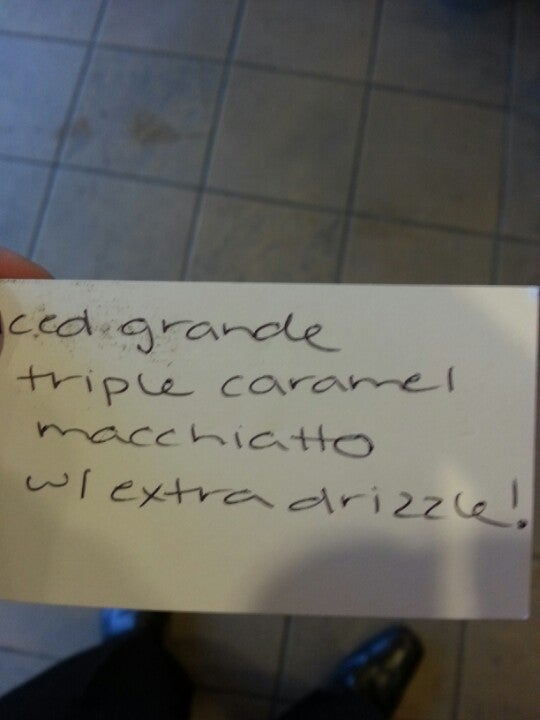 iced grande
triple caramel
macchiatto
w/ extra drizzle!